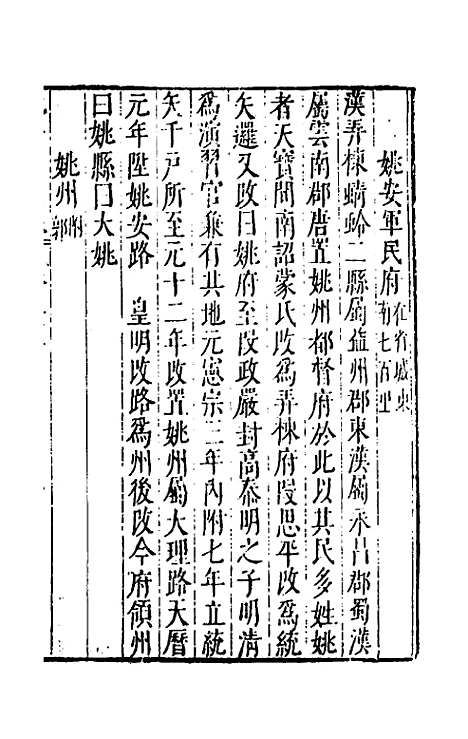 姚安軍民府在省城東南七百里
漢弄棟蜻蛉二縣屬益州郡東漢屬永昌郡蜀漢
屬雲南郡唐置姚州都督府於此以其民多姓姚
者天寶間南詔蒙氏改爲弄棟府段思平改爲統
矢邏又改曰姚府至段政嚴封高泰明之子明清
爲演習官兼有其地元憲宗三年內附七年立統
矢千戶所至元十二年改置姚州屬大理路天曆
元年陞姚安路 皇明改路爲州後改今府領州
曰姚縣曰大姚
姚州附郭